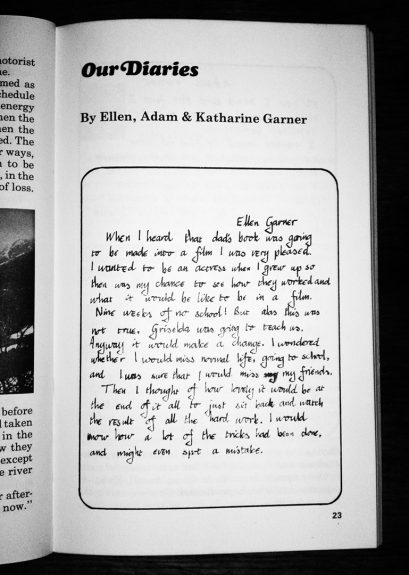 otorist
e.
med as
chedule
energy
en the
en the
ed. The
r ways,
n to be
, in the
of loss.
before
taken
in the
w they
except
e river
r after-
now."
Our Diaries
By Ellen, Adam & Katharine Garner
Ellen Garner
When I heard that dad's book was going
to be made into a film I was very pleased.
I wanted to be an actress when I grew up so
then was my chance to see how they worked and
what it would be like to be in a film.
Nine weeks of no school! But alas this was
not true. Griselda was going to teach us.
Anyway it would make a change. I wondered
whether I would miss normal life, going to school,
and I was sure that I would miss my friends.
Then I thought of how lovely it would be at
the end of it all to just sit back and watch
the result of all the hard work. I would
know how a lot of the tricks had been done,
and might even spot a mistake.
23